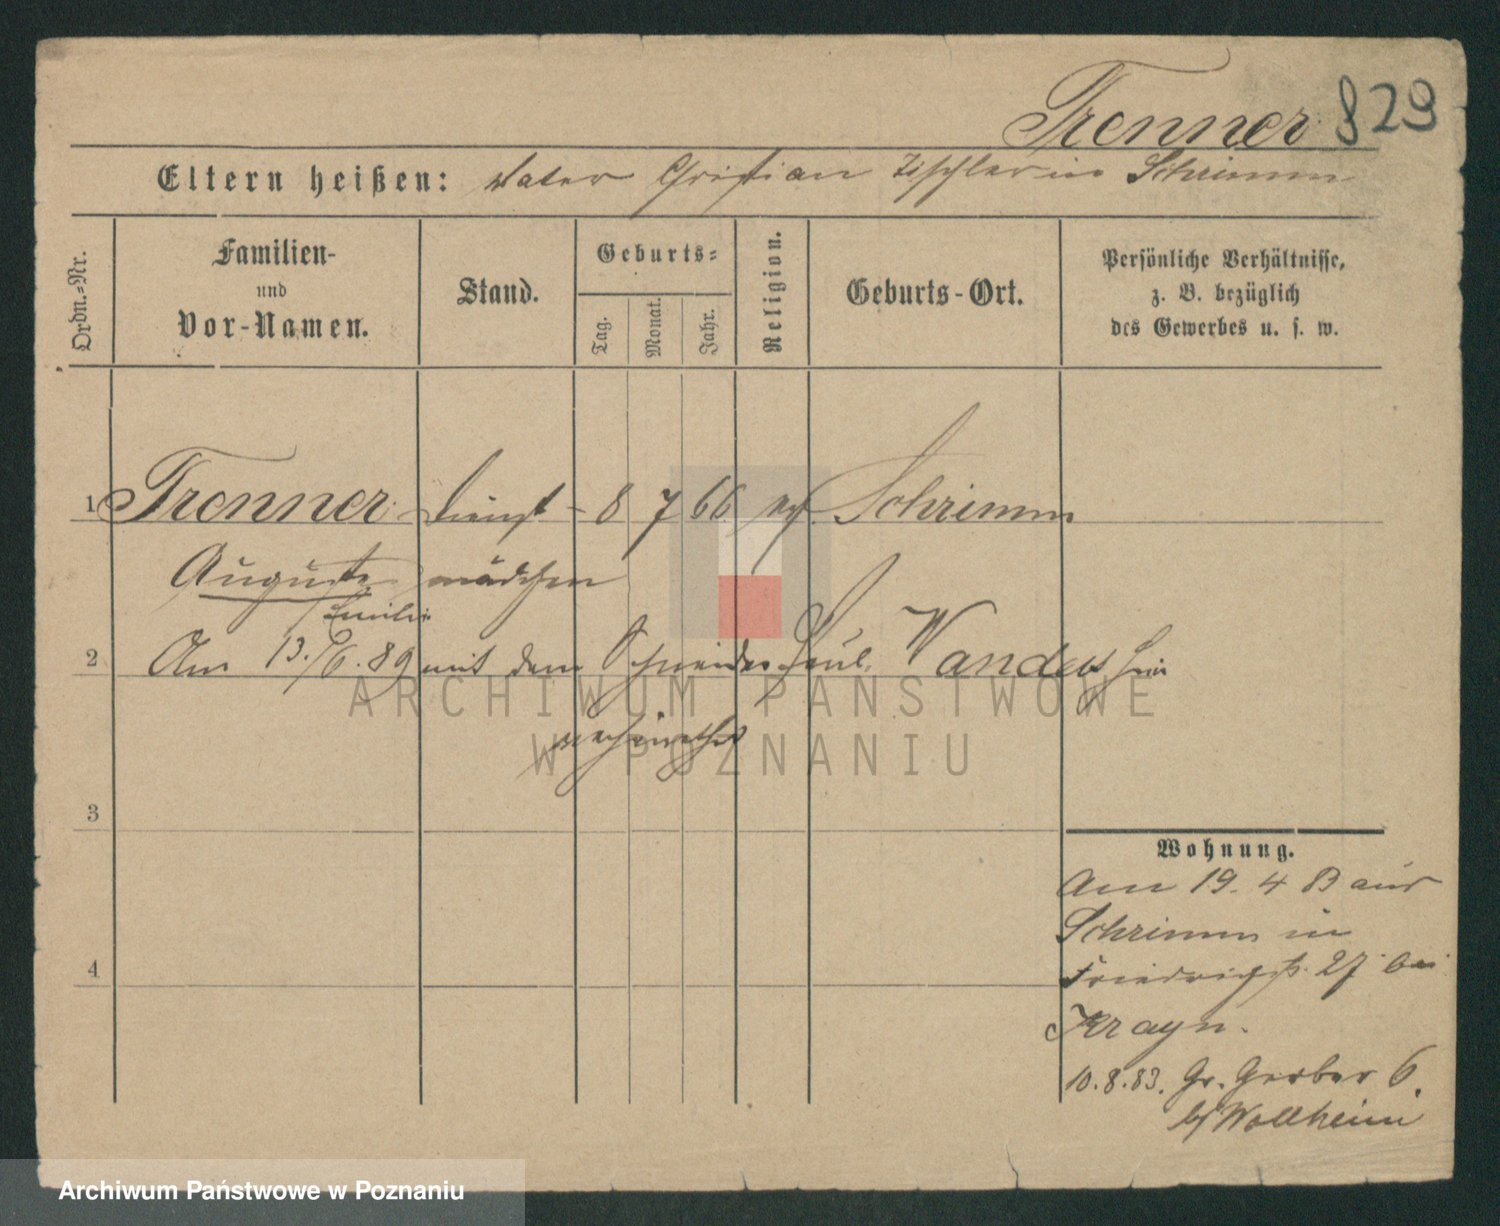 Trenner 829
Eltern heißen: Vater Christian Tischler in Schrimm
Ordn.-Nr.
Familien-
und
Vor-Namen.
Stand.
Geburts-
Tag.
Monat.
Jahr.
Religion.
Geburts-Ort.
Persönliche Verhältnisse,
z. B. bezüglich
des Gewerbes u. s. w.
1 Trenner Dienst- 8 7 66 ev. Schrimm
Auguste mädchen
Emilie
2 Am 13./6.89 mit dem Schneider Paul
verheirathet
3
4
Wohnung.
Am 19. 4 83 aus
Schrimm in
Friedrichstr. 27 bei
Krayn.
10.8.83. Gr. Gerber 6.
b/ Wollheim
ARCHIWUM PAŃSTWOWE
W POZNANIU
Archiwum Państwowe w Poznaniu